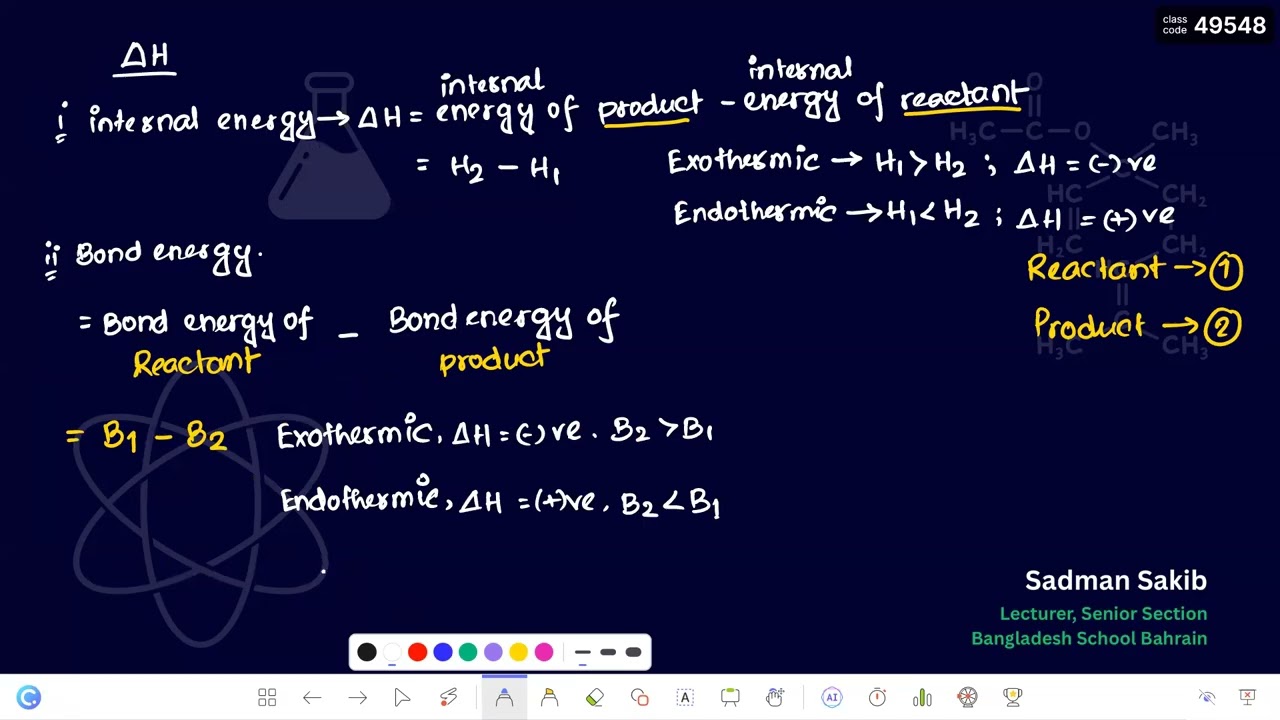 class code 49548
ΔH
i internal energy → ΔH = internal energy of product - internal energy of reactant
= H₂ - H₁
Exothermic → H₁ > H₂ ; ΔH = (-) ve
Endothermic → H₁ < H₂ ; ΔH = (+) ve
ii Bond energy.
Reactant → ①
Product → ②
= Bond energy of Reactant - Bond energy of product
= B₁ - B₂
Exothermic, ΔH = (-) ve . B₂ > B₁
Endothermic, ΔH = (+) ve . B₂ < B₁
H₃C C O CH₃
O
HC CH₂
H₂C CH₂
H₃C CH₃
Sadman Sakib
Lecturer, Senior Section
Bangladesh School Bahrain
A
AI